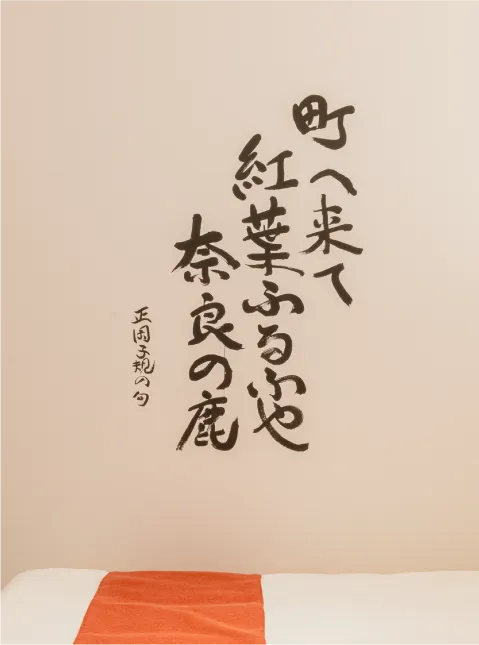 町へ来て
紅葉ふるふや
奈良の鹿
正岡子規の句